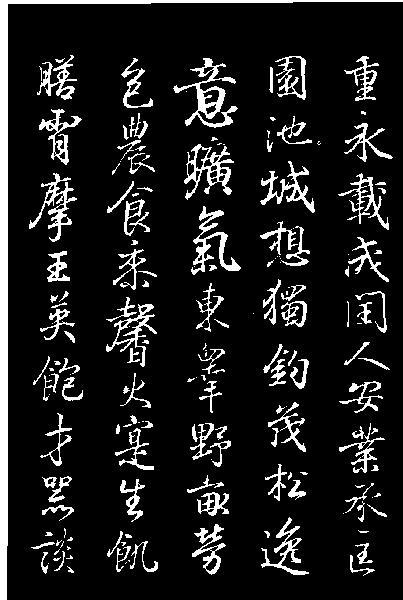 重永載成閏人安業承匡
園池城想獨釣茂松逸
意曠氣東皋野畝勞
色農食黍馨火寔生飢
膳宵摩王英飽才器談